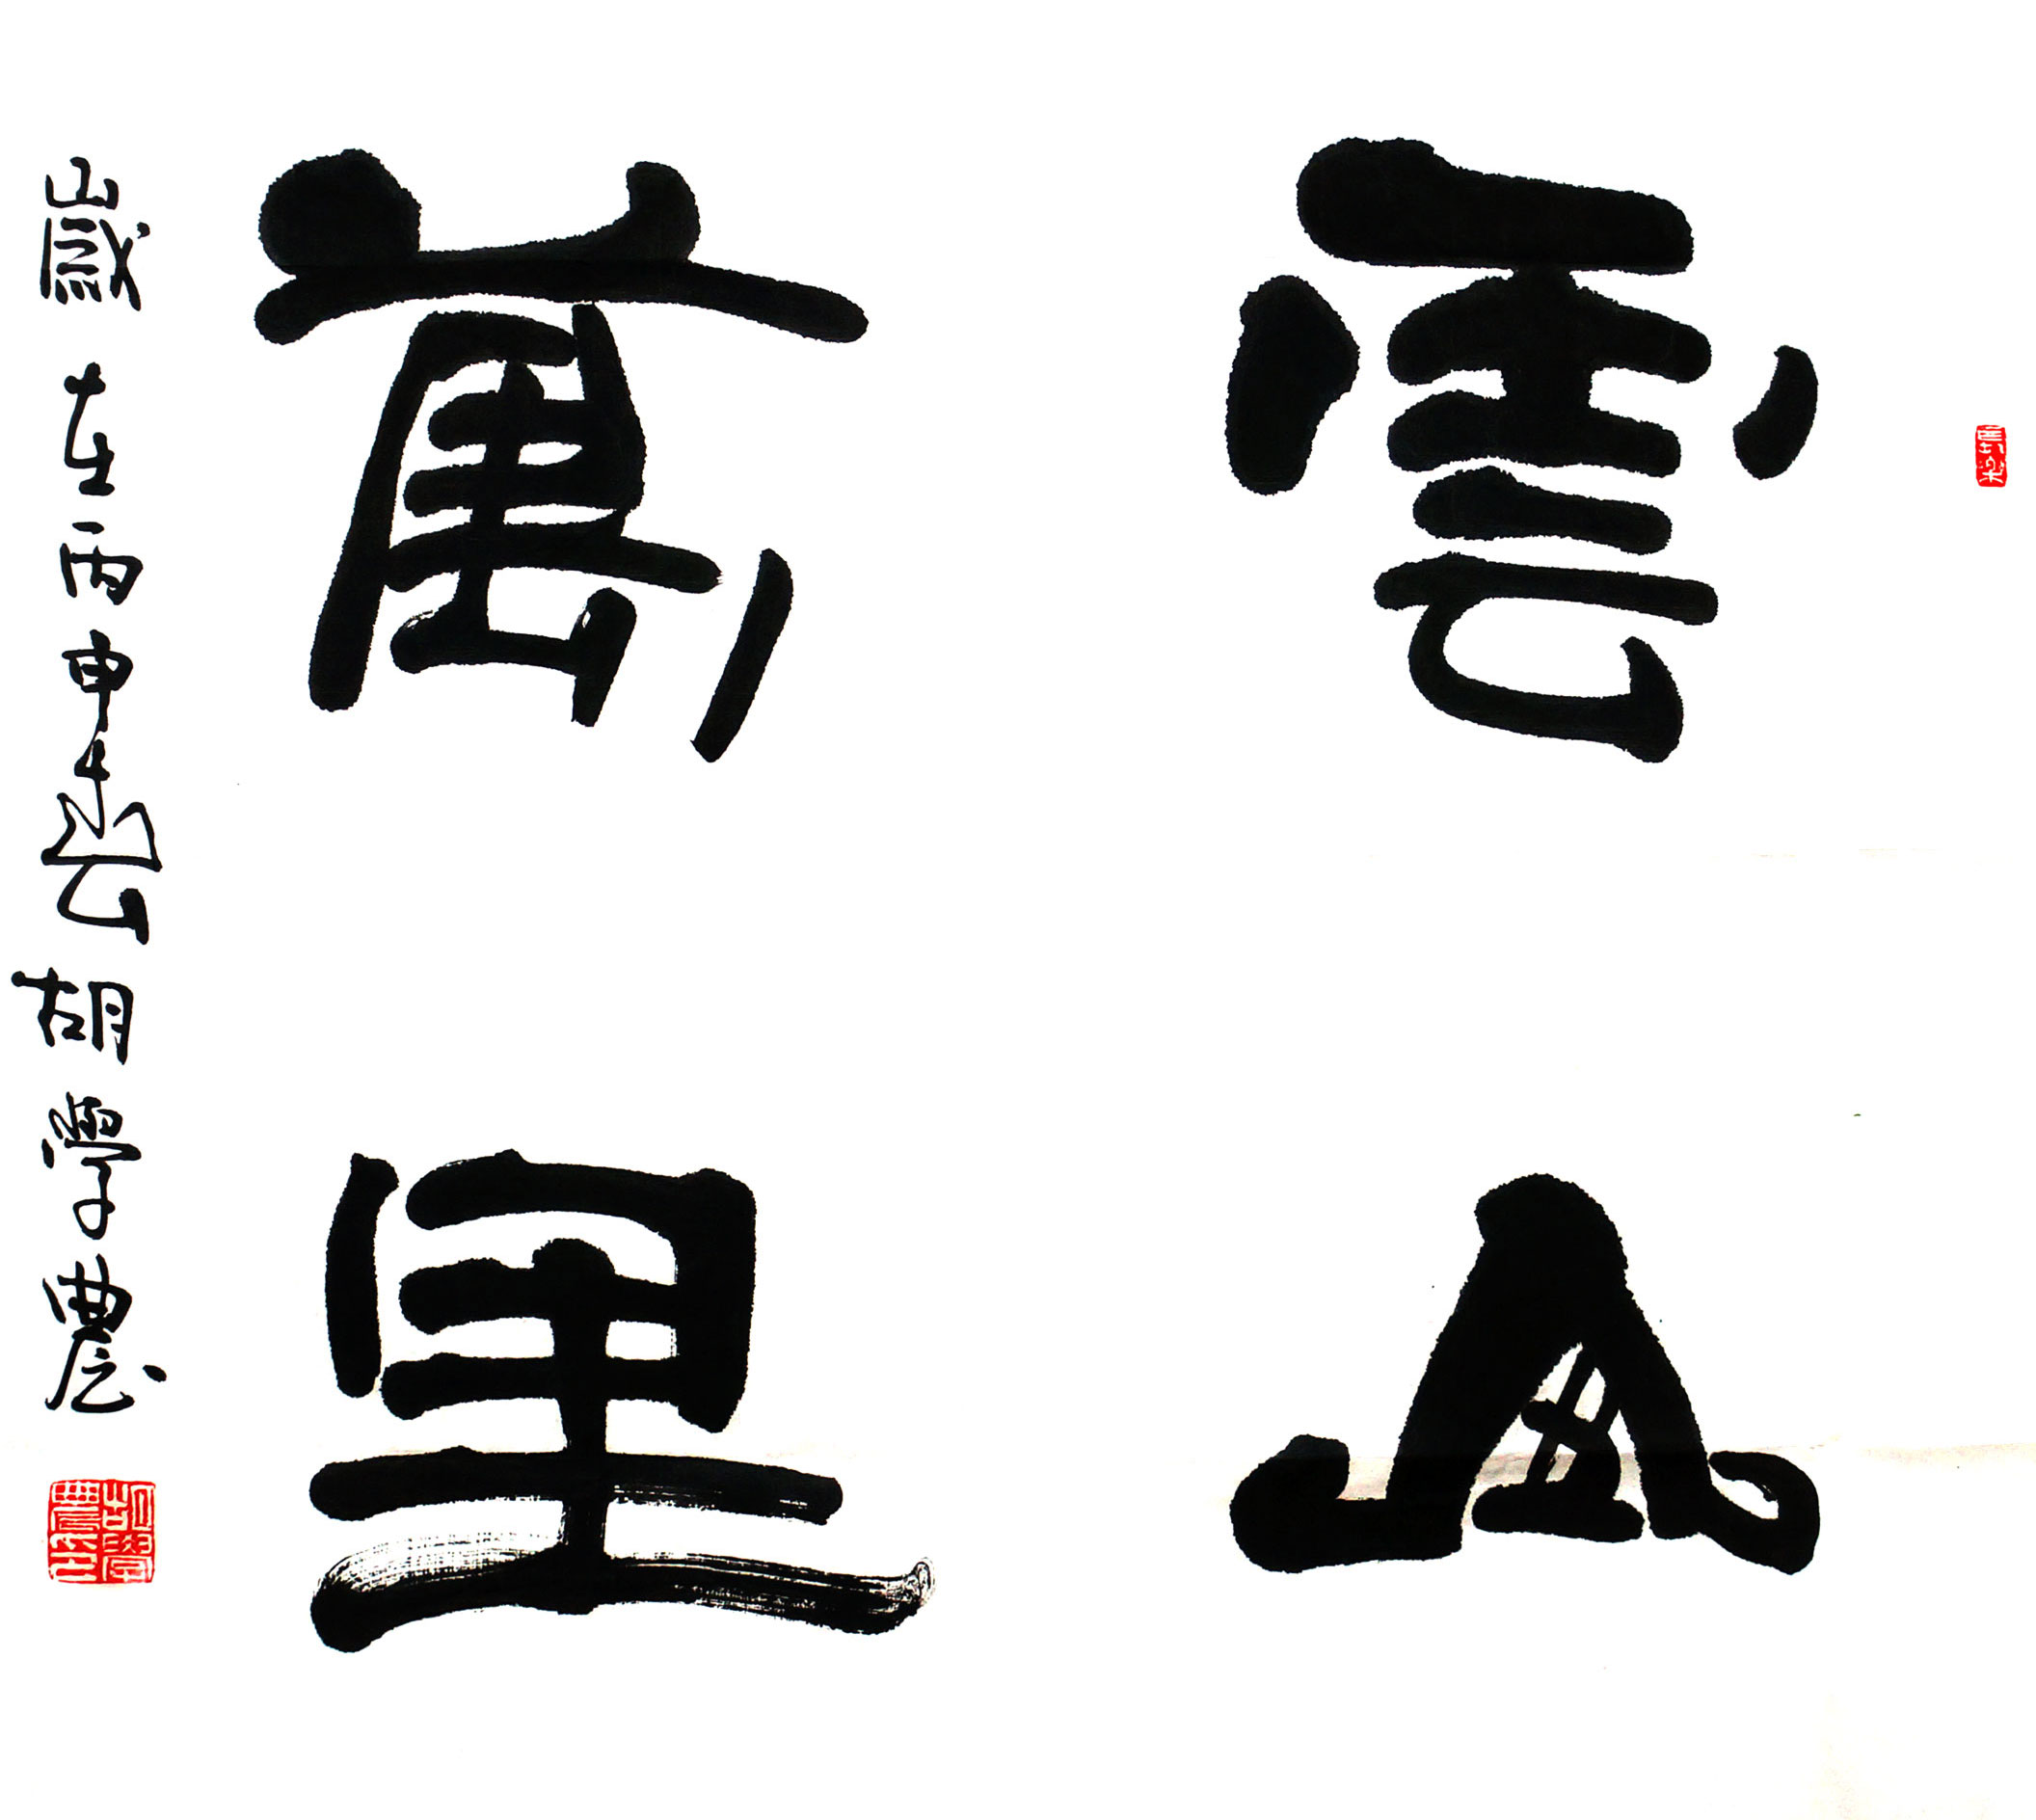 雲山
萬里
歲在丙申 胡學農